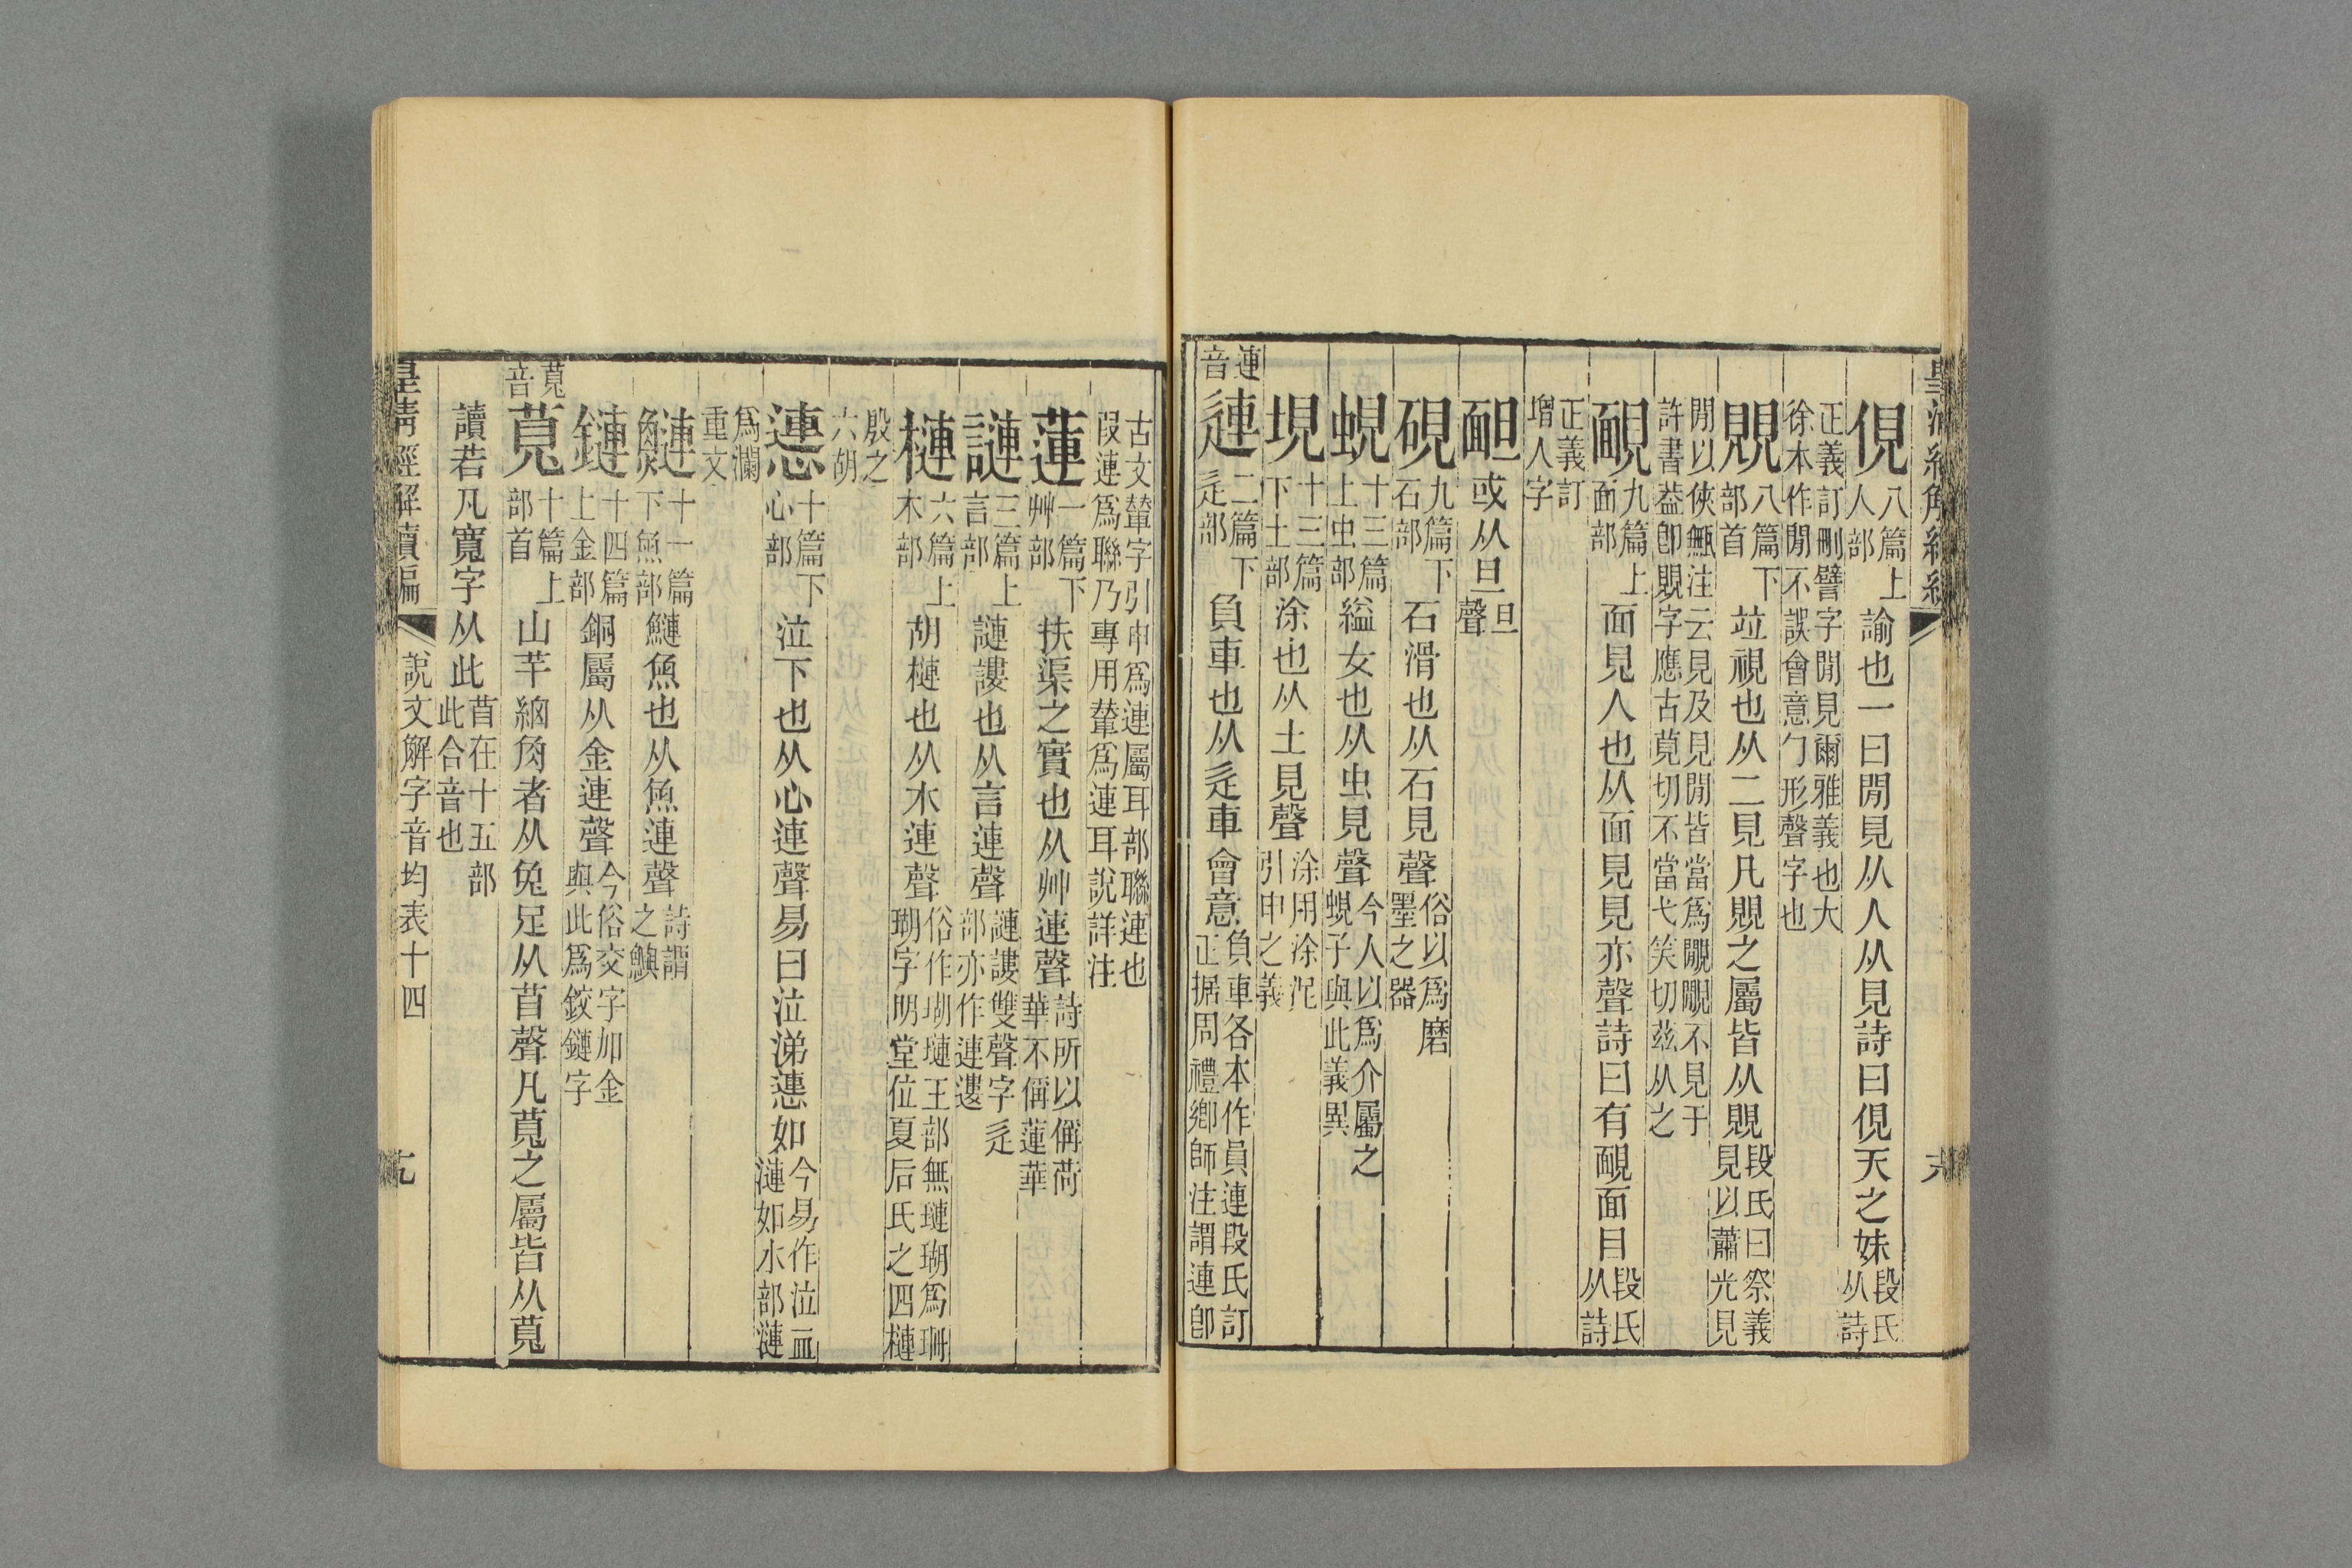 俔八篇上人部諭也一曰閒見从人从見詩曰俔天之妹段氏从詩
正義訂刪譬字閒見爾雅義也大徐本作閒不誤會意勹形聲字也
覞八篇下部首竝視也从二見凡覞之屬皆从覞段氏曰祭義見以蕭光見
閒以俠甒注云見及見閒皆當爲覸覸不見于許書葢卽覞字應古莧切不當弋笑切茲从之
靦九篇上面部面見人也从面見見亦聲詩曰有靦面目段氏从詩
正義訂增人字
䩆或从旦旦聲
硯九篇下石部石滑也从石見聲俗以爲磨墨之器
蜆十三篇上虫部縊女也从虫見聲今人以爲介屬之蜆子與此義異
垷十三篇下土部涂也从土見聲涂用涂泥引申之義
連音連二篇下辵部負車也从辵車會意負車各本作員連段氏訂正据周禮鄉師注謂連卽
古文輦字引申爲連屬耳部聯連也叚連爲聯乃專用輦爲連耳說詳注
蓮一篇下艸部扶渠之實也从艸連聲詩所以偁荷華不偁蓮華
謰三篇上言部謰謱也从言連聲謰謱雙聲字辵部亦作連遱
槤六篇上木部胡槤也从木連聲俗作瑚璉王部無璉瑚爲珊瑚字明堂位夏后氏之四槤
殷之六胡
慩十篇下心部泣下也从心連聲易曰泣涕慩如今易作泣血漣如水部漣
爲瀾重文
鰱十一篇下魚部鰱魚也从魚連聲詩謂之鱮
鏈十四篇上金部銅屬从金連聲今俗交字加金與此爲鉸鏈字
萈音萈十篇上部首山羊細角者从兔足从苜聲凡萈之屬皆从萈
讀若凡寬字从此苜在十五部此合音也
皇清經解續編 說文解字音均表十四